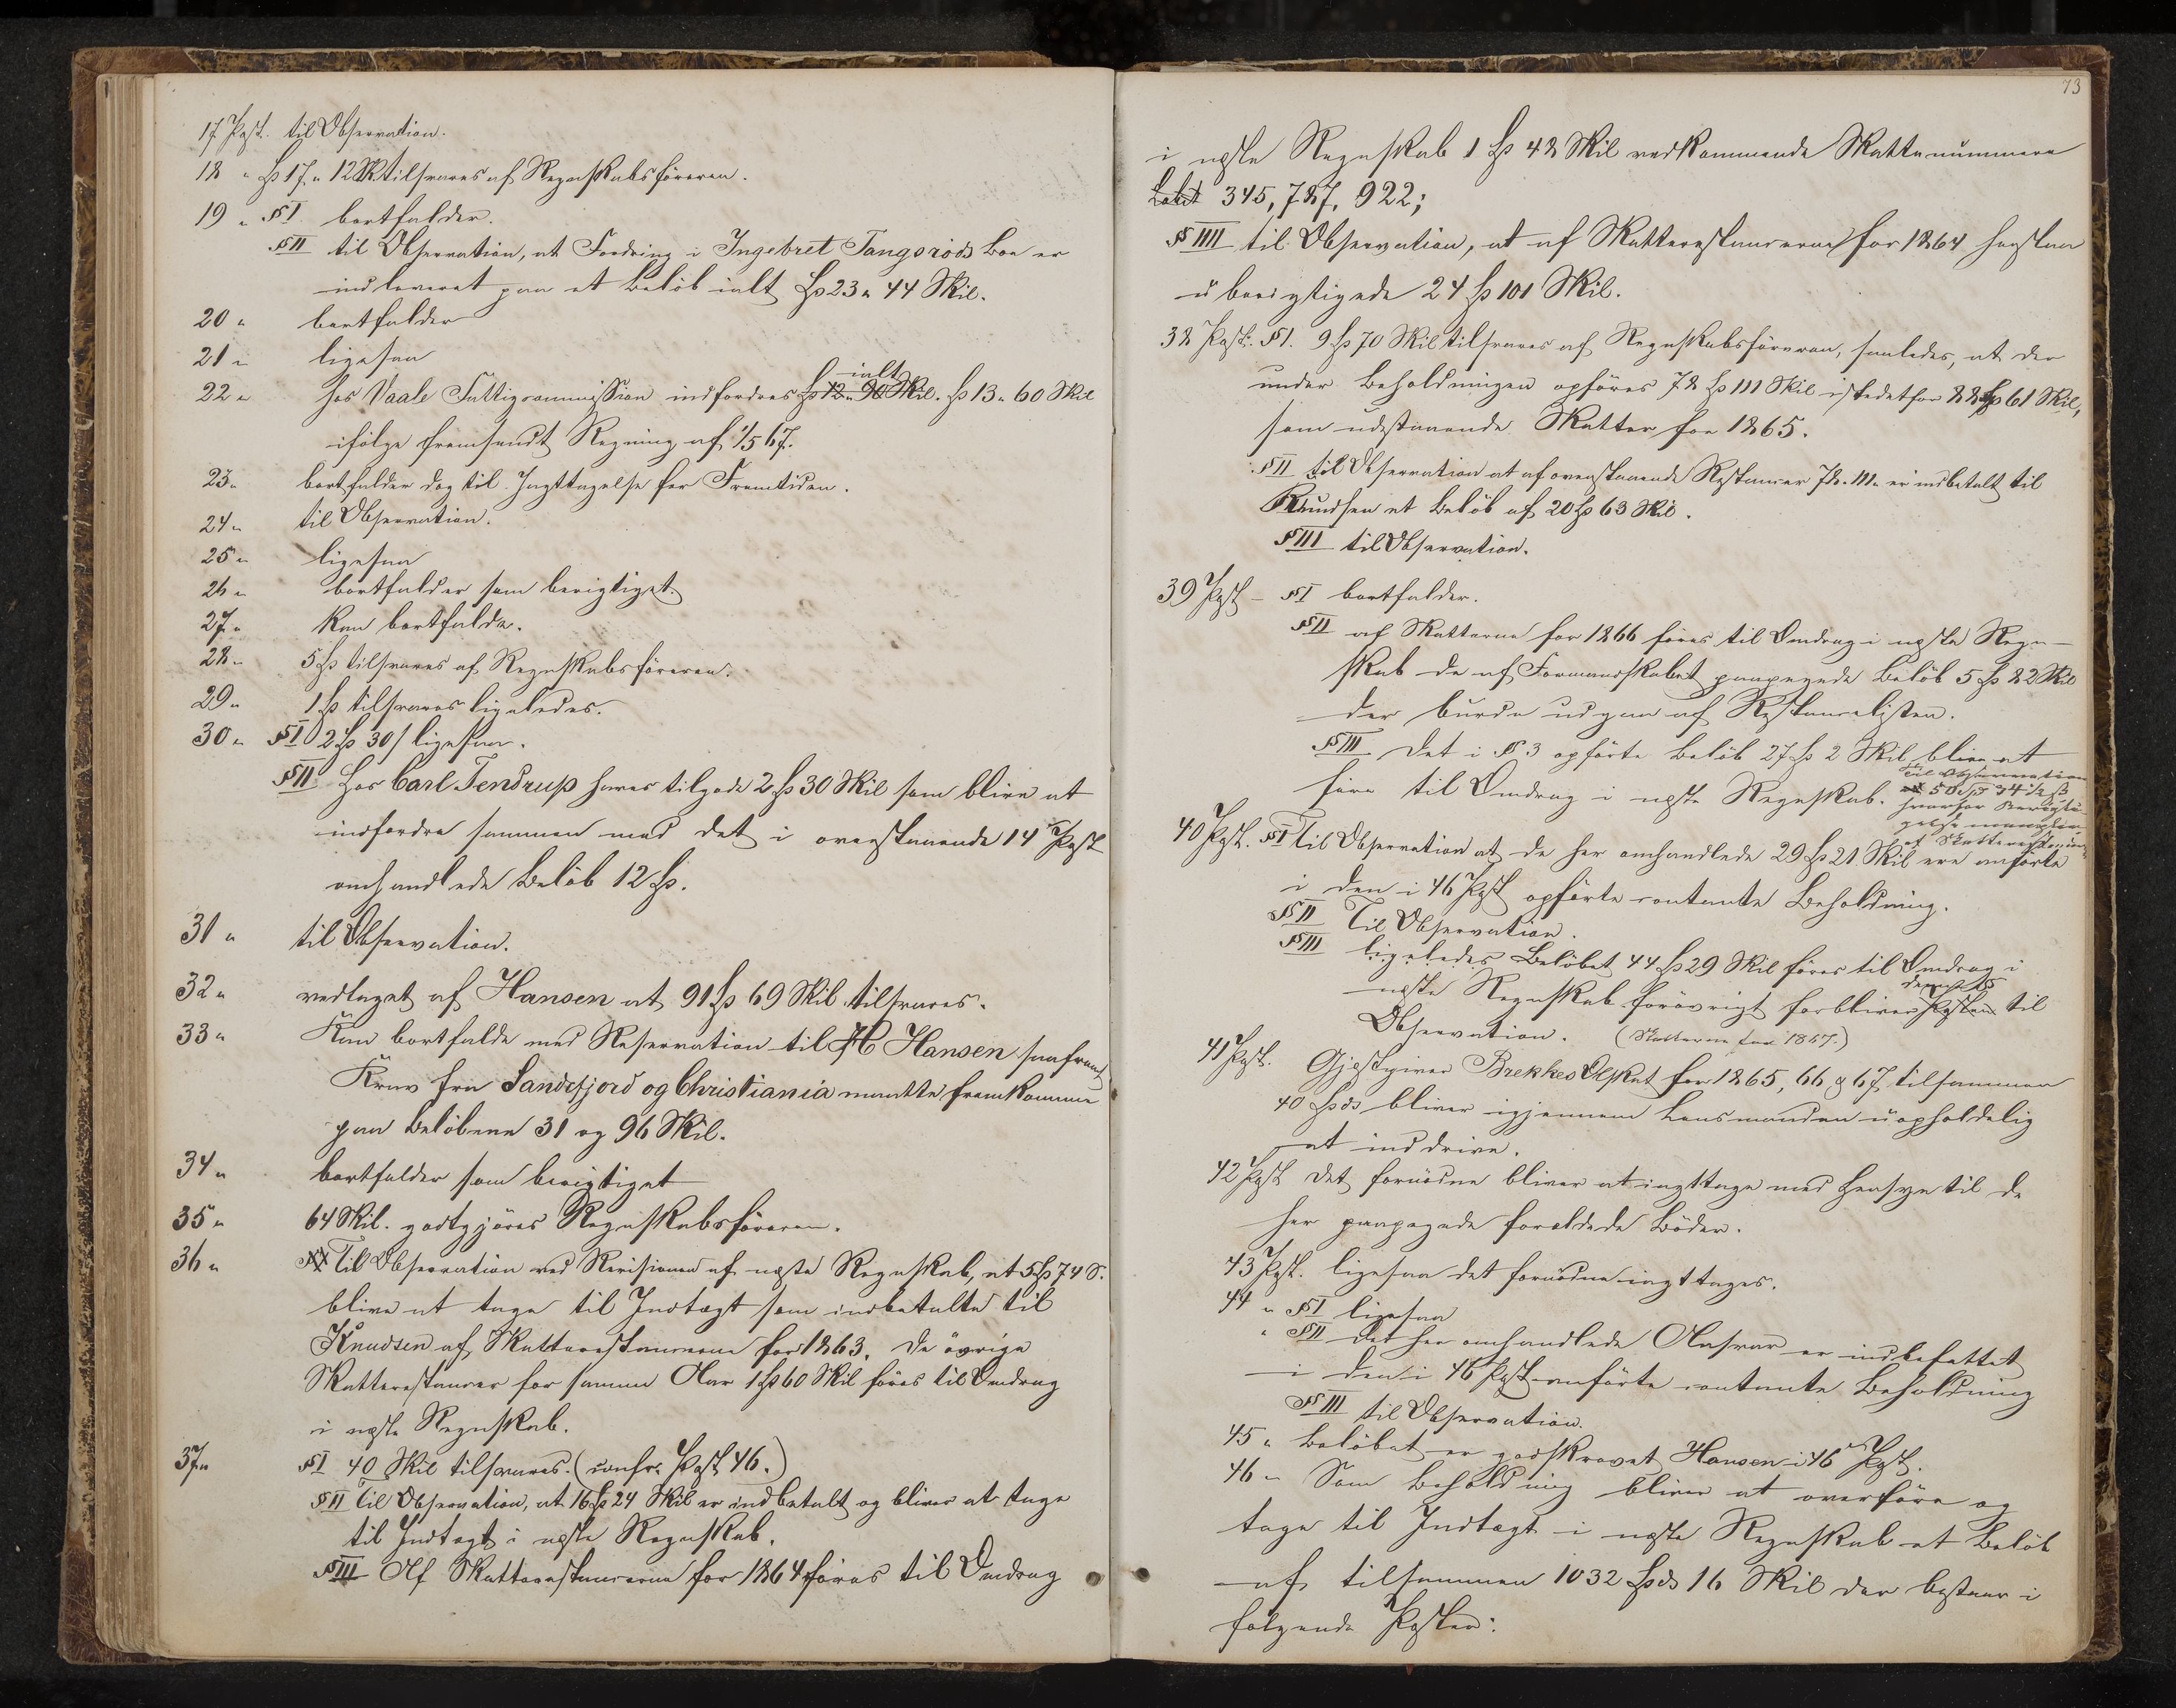 17 Post. til Observation.
18 " Sp 17 " 12 S tilsvares af Regnskabsföreren.
19 " § I bortfalder.
§ II til Observation, at Fordring i Ingebret Tangsröds Boe er
indleveret paa et Belöb ialt Sp 23 " 44 Skil.
20 " bortfalder
21 " ligesaa
22 " hos Vaale Fattigcommission indfordres Sp 12 " 90 Skil. ialt Sp 13 " 60 Skil
ifölge fremsendt Regning af 1/5 67.
23 " bortfalder dog til Iagttagelse for Fremtiden.
24 " til Observation.
25 " ligesaa
26 " bortfalder som berigtiget.
27 " kan bortfalde.
28 " 5 Sp tilsvares af Regnskabsföreren.
29 " 1 Sp tilsvares ligeledes.
30 " § I 2 Sp 30 s ligesaa.
§ II Hos Carl Tendrup haves tilgode 2 Sp 30 Skil som blive at
indfordre sammen med det i ovenstaaende 14 Post
omhandlede Belöb 12 Sp.
31 " til Observation.
32 " vedtaget af Hansen at 91 Sp 69 Skil tilsvares.
33 " Kan bortfalde med Reservation til H Hansen saafremt
Krav fra Sandefjord og Christiania maatte fremkomme
paa Belöbene 31 og 96 Skil.
34 " bortfalder som berigtiget
35 " 64 Skil. godtgjöres Regnskabsföreren.
36 " Til Observation ved Revisionen af næste Regnskab, at 5 Sp 74 S.
blive at tage til Indtægt som indbetalte til
Knudsen af Skatterestancerne for 1863. De övrige
Skatterestancer for samme Aar 1 Sp 60 Skil föres til Omdrag
i næste Regnskab.
37 " § I 40 Skil tilsvares. (confr. Post 46.)
§ II Til Observation, at 16 Sp 24 Skil er indbetalt og bliver at tage
til Indtægt i næste Regnskab.
§ III Af Skatterestancerne for 1864 föres til Omdrag
73
i næste Regnskab 1 Sp 48 Skil vedkommende Skattenummere
345, 787, 922;
§ IIII til Observation, at af Skatterestancerne for 1864 henstaa
uberigtigede 24 Sp 101 Skil.
38 Post. § 1. 9 Sp 70 Skil tilsvares af Regnskabsföreren, saaledes, at der
under Beholdningen opföres 78 Sp 111 Skil istedetfor 88 Sp 61 Skil,
som udestaaende Skatter for 1865.
§ II til Observation at af ovenstaaende Restancer 78 " 111 " er indbetalt til
Knudsen et Belöb af 20 Sp 63 Skil.
§ III til Observation.
39 Post – § I bortfalder.
§ II af Skatterne for 1866 föres til Omdrag i næste Regn-
skab de af Formandskabet paapegede Belöb 5 Sp 82 Skil
der burde udgaa af Restancelisten.
§ III Det i § 3 opförte Belöb 27 Sp 2 Skil blive at
före til Omdrag i næste Regnskab.
Til Observation
50 Sp 34 1/2 ß
hvorfor Berigti-
gelse mangler
af Skatterestancer
40 Post. § I Til Observation at de her omhandlede 29 Sp 21 Skil ere anförte
i den i 46 Post opförte contante Beholdning.
§ II Til Observation.
§ III ligeledes Belöbet 44 Sp 29 Skil föres til Omdrag i
næste Regnskab forövrigt forbliver Posten til
Observation. (Skatterne for 1867.)
41 Post. Gjestgiver Brekkes Ölskat for 1865, 66 og 67 tilsammen
40 Spds bliver igjennem Lensmanden uopholdelig
at inddrive.
42 Post Det fornödne bliver at iagttage med Hensyn til de
her paapegede forældede Böder.
43 Post. ligesaa det fornödne iagttages.
44 " § I ligesaa
" § II Det her omhandlede Ansvar er indbefattet
i den i 46 Post anförte contante Beholdning
§ III til Observation.
45 " Belöbet er godskrevet Hansen i 46 Post.
46 " Som Beholdning bliver at overföre og
tage til Indtægt i næste Regnskab et Belöb
af tilsammen 1032 Spds 16 Skil der bestaar i
fölgende Poster: